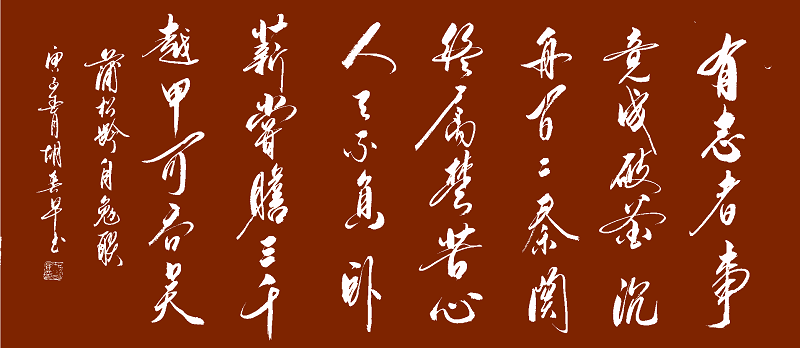 有志者事
竟成破釜沉
舟百二秦関
终属楚苦心
人天不負卧
薪嘗膽三千
越甲可吞吴
蒲松龄自勉联
庚子春月胡早书